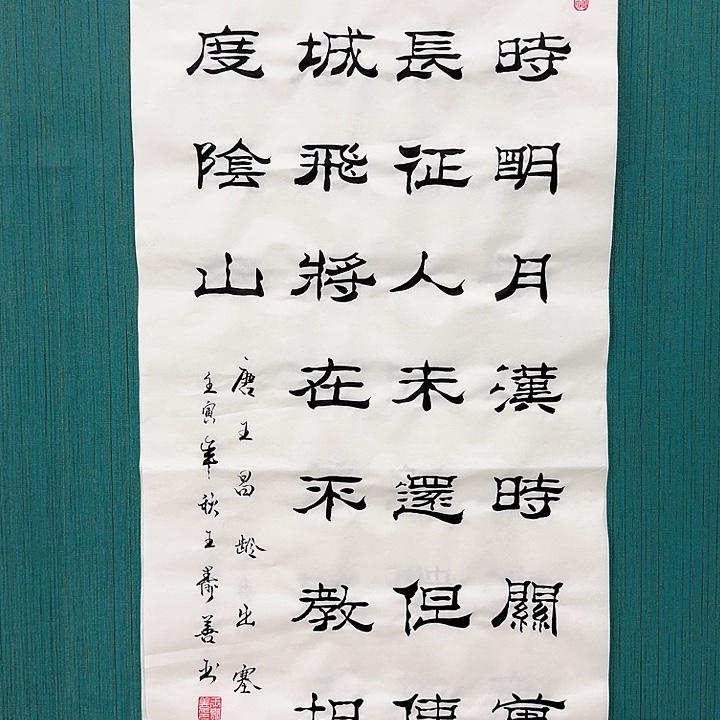 時明月漢時關萬
長征人未還但使
城飛將在不教胡
度陰山
唐王昌齡出塞
壬寅年秋王壽善书